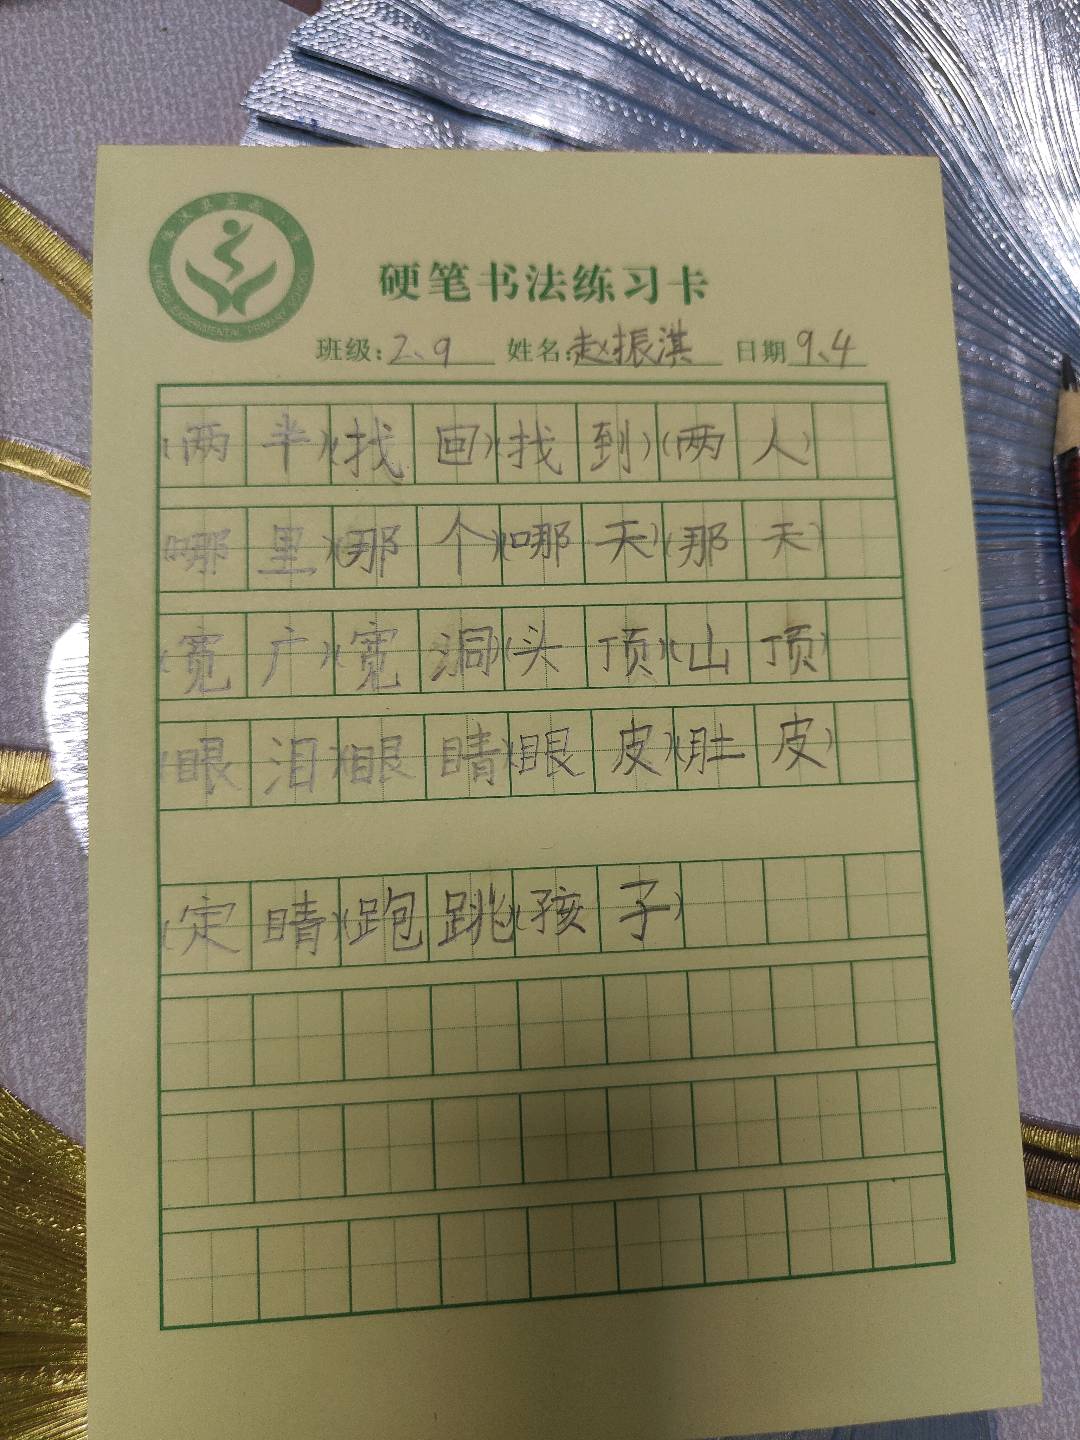 硬笔书法练习卡
班级:2、9 姓名:赵振淇 日期9、4
(两半)(找回)(找到)(两人)
(哪里)(那个)(哪天)(那天)
(宽广)(宽洞)(头顶)(山顶)
(眼泪)(眼睛)(眼皮)(肚皮)
(定睛)(跑跳)(孩子)